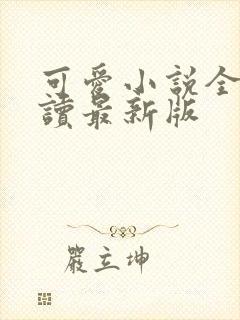 可愛小説全
讀最新版
嚴立坤